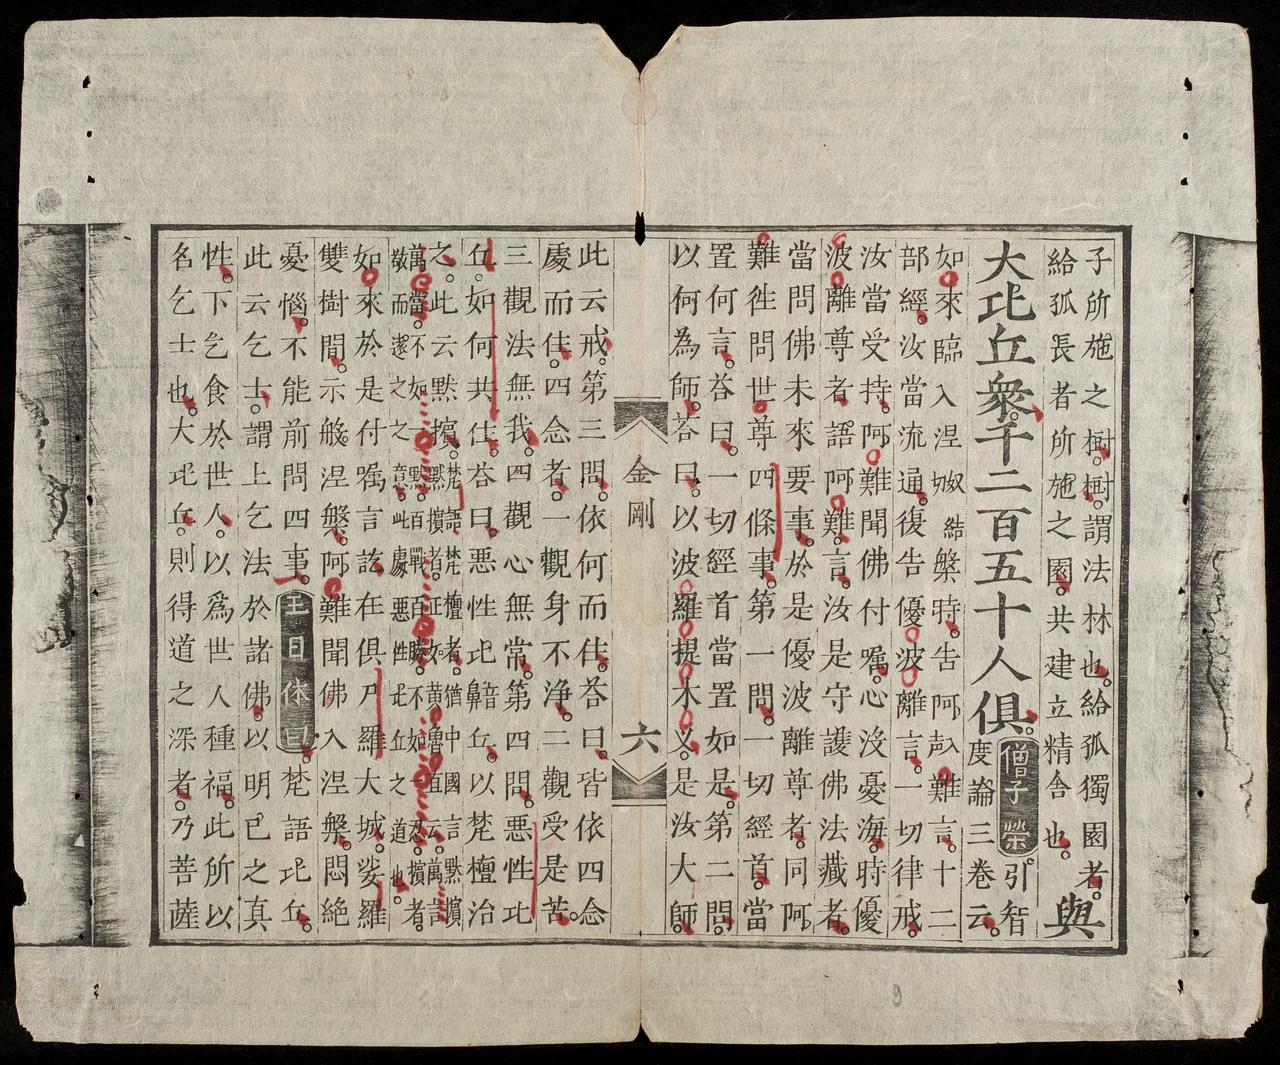 子所施之樹。樹。謂法林也。給孤獨園者。
給孤長者所施之園。共建立精舍也。與
大比丘衆。千二百五十人俱。僧子榮引智
度論三卷云。
如來臨入涅槃時。告阿難言。十二
部經。汝當流通。復告優波離言。一切律戒。
汝當受持。阿難聞佛付囑。心沒憂海。時優
波離尊者。語阿難言。汝是守護佛法藏者。
當問佛未來要事。於是優波離尊者。同阿
難往問世尊四條事。第一問。一切經首。當
置何言。荅曰。一切經首當置如是。第二問。
以何為師。荅曰。以波羅提木义。是汝大師。
金剛
六
此云戒。第三問。依何而住。荅曰。皆依四念
處而住。四念者。一觀身不淨。二觀受是苦。
三觀法無我。四觀心無常。第四問。惡性比
丘。如何共住。荅曰。惡性比丘。以梵檀治
之。此云默擯。梵語梵檀者。猶中國言默擯
萬當。不如一默。百戰百勝。不如
如來於是付囑言訖。在俱尸羅大城。娑羅
雙樹間。示般涅槃。阿難聞佛入涅槃。悶絕
憂惱。不能前問四事。王日休曰梵語比丘。
此云乞士。謂上乞法於諸佛。以明己之真
性。下乞食於世人。以爲世人種福。此所以
名乞士也。大比丘。則得道之深者。乃菩薩